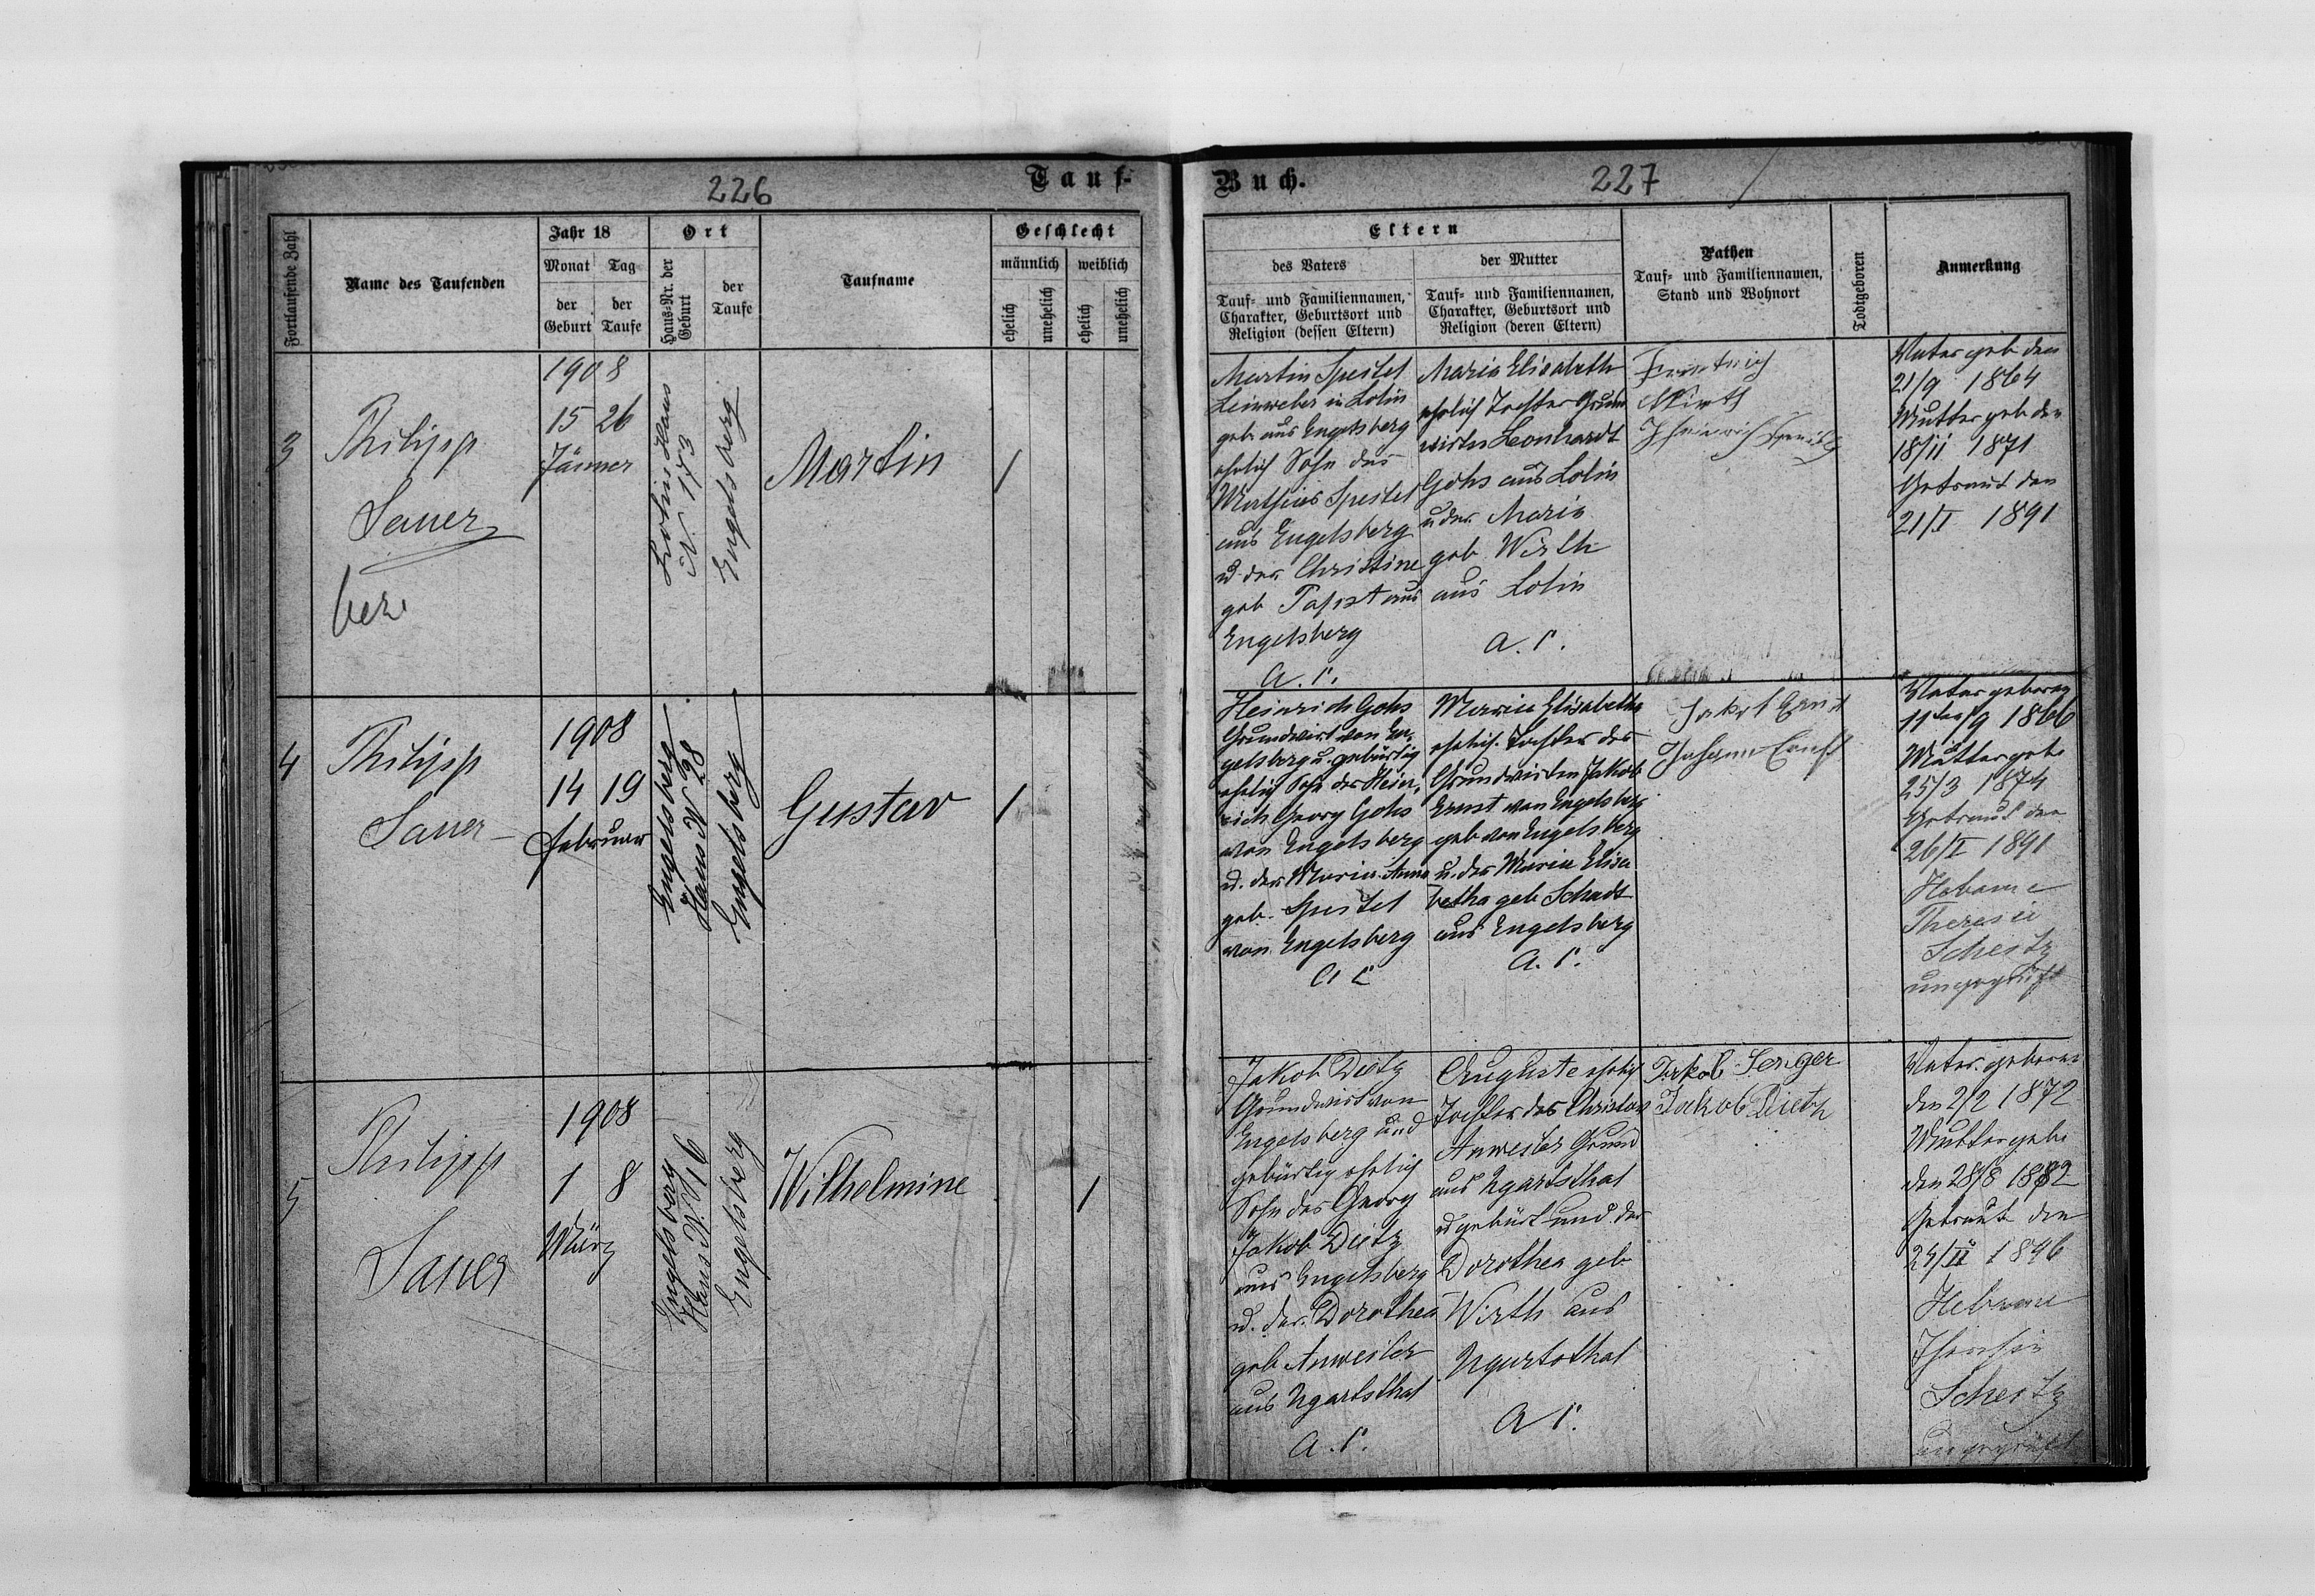 226
Tauf-
Fortlaufende Zahl
Name des Taufenden
Jahr 18
Monat
Tag
der
Geburt
der
Taufe
Ort
Haus-Nr. der
Geburt
der
Taufe
Taufname
Geschlecht
männlich
weiblich
ehelich
unehelich
ehelich
unehelich
3
Philipp
Sauer
1908
15 26
Jänner
N. 173
Engelsberg
Martin
1
4
Philipp
Sauer
1908
14 19
Februar
Engelsberg
Haus N 28
Engelsberg
Gustav
1
5
Philipp
Sauer
1908
1 8
März
Engelsberg
Haus N. 16
Engelsberg
Wilhelmine
1
Buch.
227
Eltern
des Vaters
Tauf- und Familiennamen,
Charakter, Geburtsort und
Religion (dessen Eltern)
der Mutter
Tauf- und Familiennamen,
Charakter, Geburtsort und
Religion (deren Eltern)
Pathen
Tauf- und Familiennamen,
Stand und Wohnort
Todtgeboren
Anmerkung
Martin Speitel
Leinweber in Lolin
geb aus Engelsberg
ehelich Sohn des
Mathias Speitel
aus Engelsberg
u. der Christine
geb aus
Engelsberg
Maria Elisabeth
ehelich Tochter Grund
wirten Leonhardt
Gohs aus Lolin
u der Maria
geb. Wirth
aus Lolin
Wirth
Vater geb den
21/9 1864
Mutter geb den
18/11 1871
Getraut den
21/I 1891
Heinrich Gohs
Grundwirt von En,
gelsberg u. gebürtig
ehelich Sohn des Hein,
rich Georg Gohs
von Engelsberg
u. der Maria Anna
geb. Speitel
von Engelsberg
Maria Elisabetha
ehelich. Tochter des
Grundwirten Jakob
Ernst von Engelsberg
geb von Engelsberg
u. der Maria Elisa
betha geb Schadt
aus Engelsberg
Jakob Ernst
Johann Ernst
Vater geboren
11ten/9 1866
Mutter geb
25/3 1874
Getraut den
26/I 1891
Hebame
Theresia
Scheitz
ungeprüft
Jakob Dietz
Grundwirt von
Engelsberg und
gebürtig ehelich
Sohn des Georg
Jakob Dietz
aus Engelsberg
u. der Dorothea
geb Anweiler
aus Ugartsthal
Auguste ehelich
Tochter des Christian
Anweiler Grund
aus Ugartsthal
u gebürt und der
Dorothea geb
Wirth aus
Ugartsthal
Jakob Senger
Jakob Dietz
Vater. geboren
den 2/2 1872
Mutter geb
den 28/8
Getraut den
24/II 1896
Hebame
Scheitz
ungeprüft